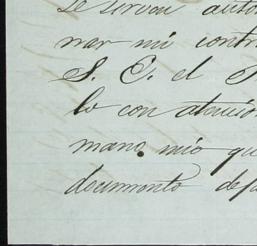 se sirvan auto
nar mi contr
S. C. el
lo con atencion
mano mio qu
documento def